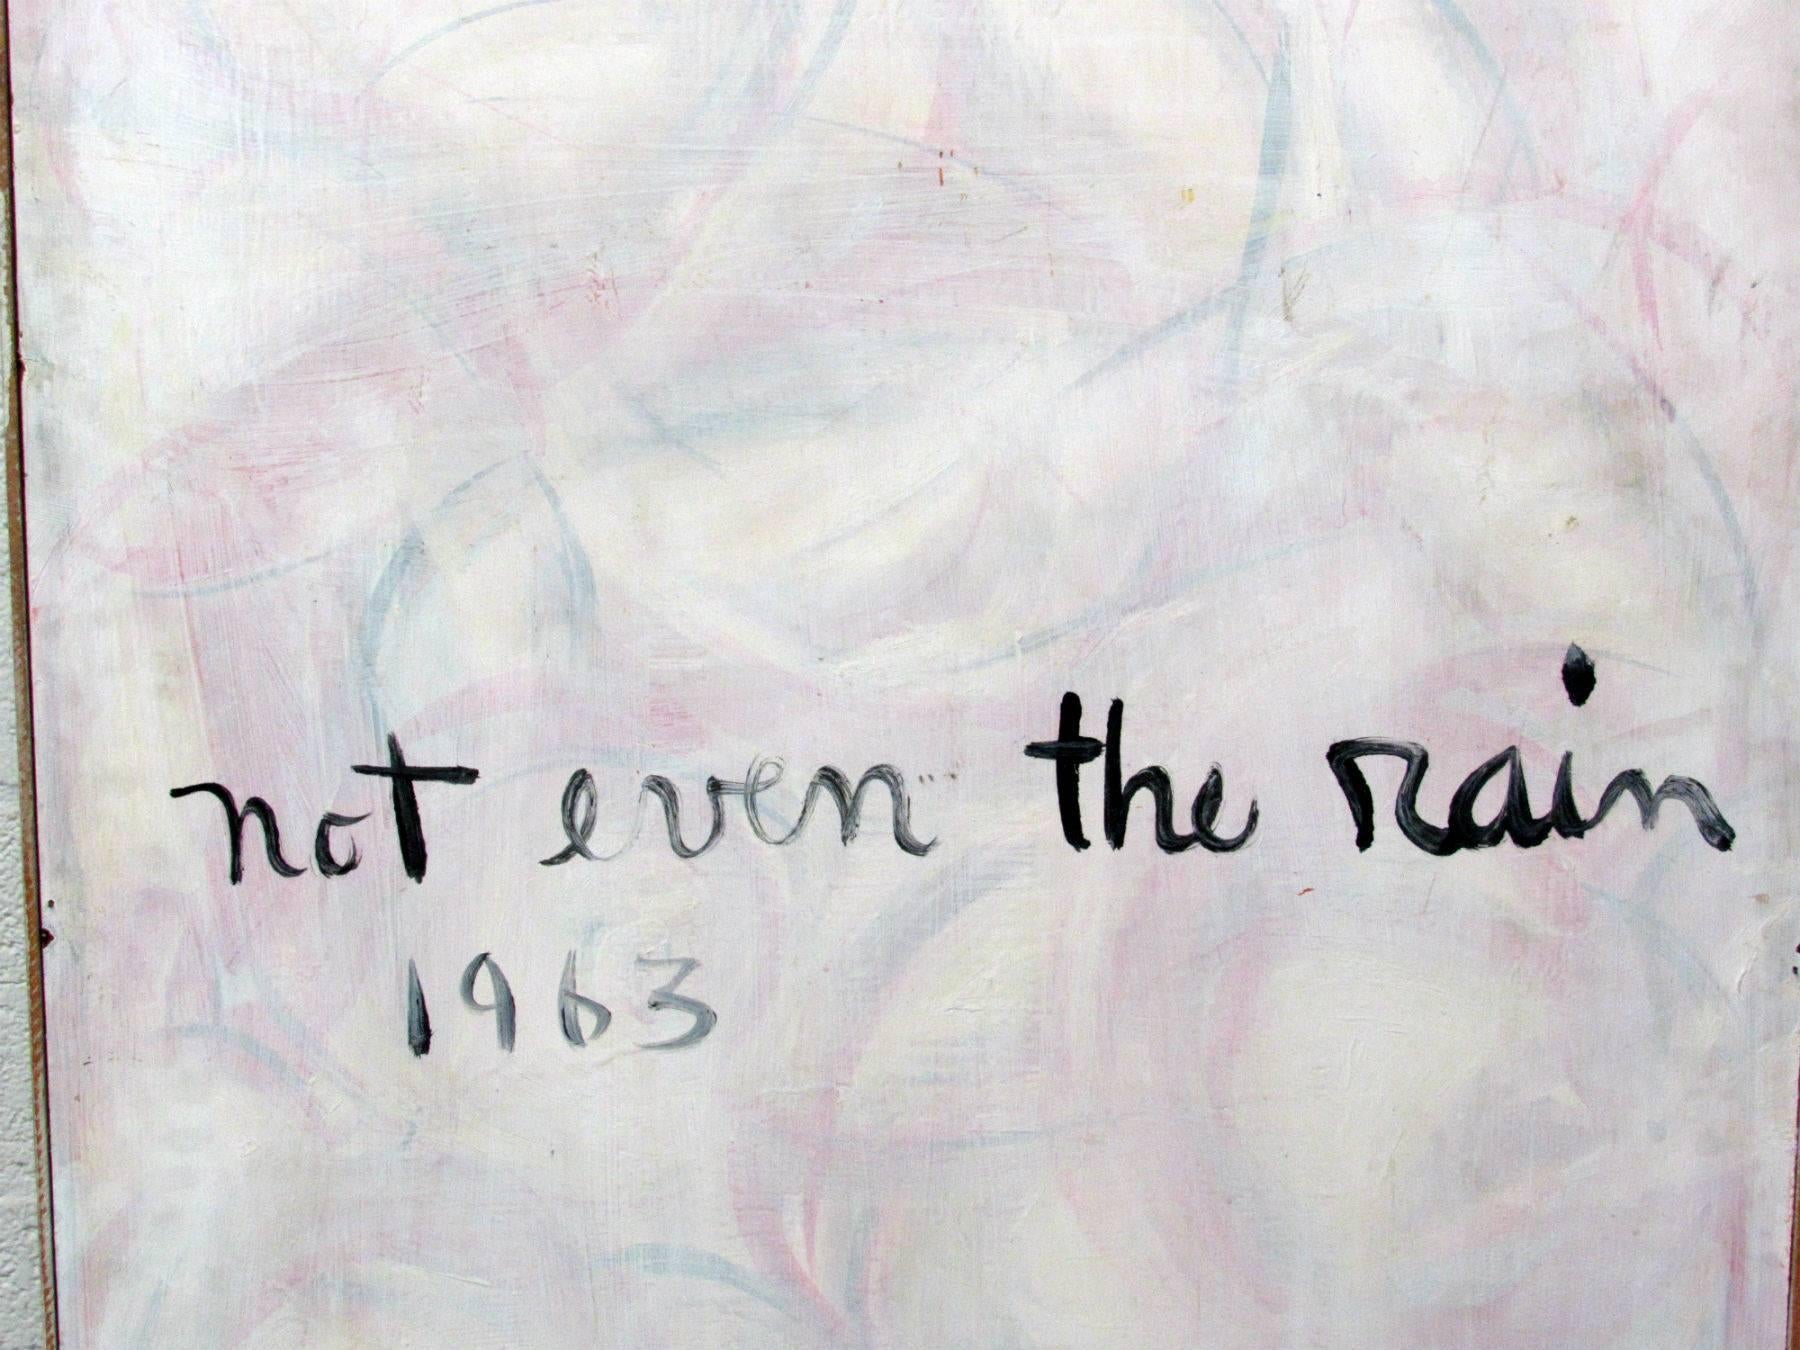 not even the rain
1963